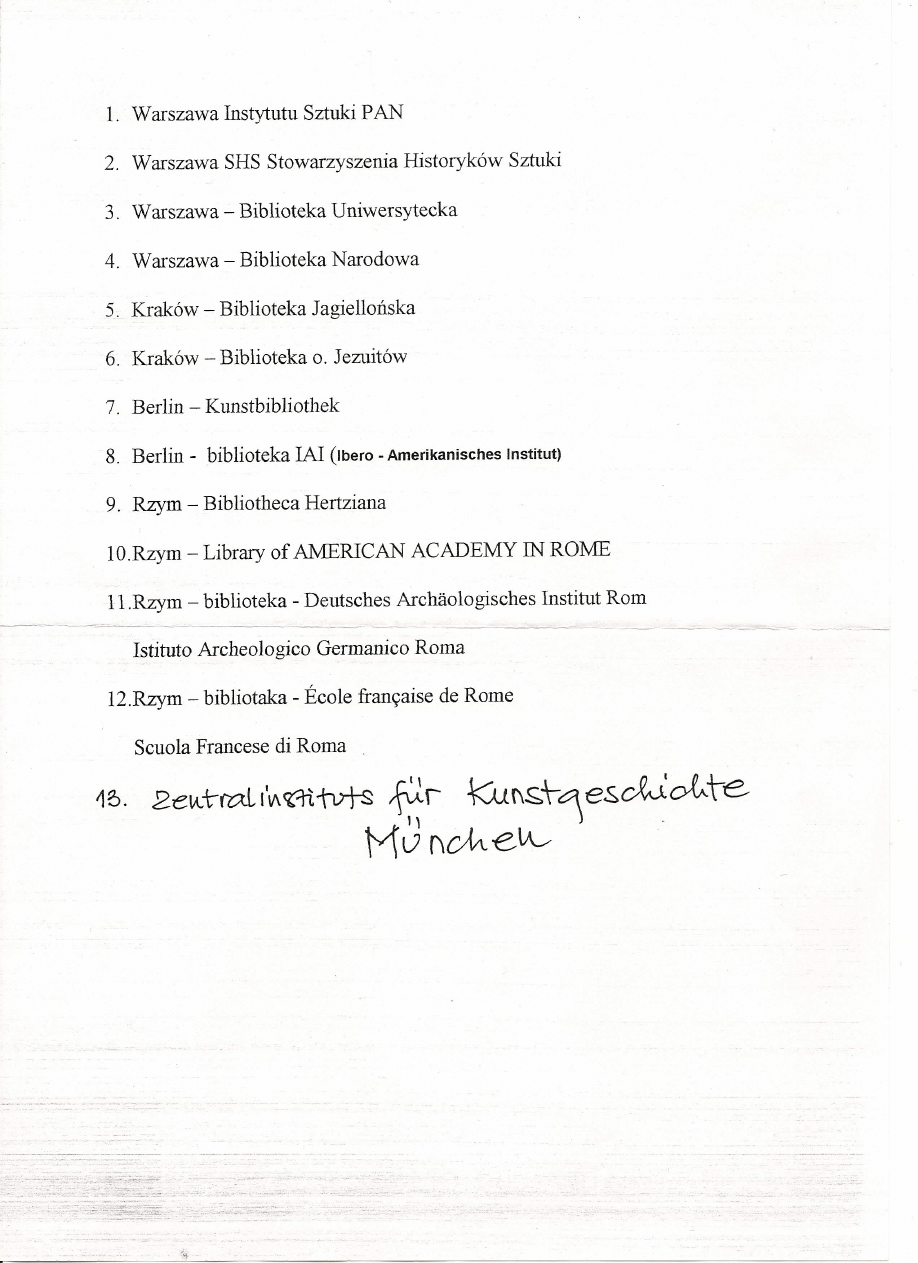 1. Warszawa Instytutu Sztuki PAN
2. Warszawa SHS Stowarzyszenia Historyków Sztuki
3. Warszawa – Biblioteka Uniwersytecka
4. Warszawa – Biblioteka Narodowa
5. Kraków – Biblioteka Jagiellońska
6. Kraków – Biblioteka o. Jezuitów
7. Berlin – Kunstbibliothek
8. Berlin - biblioteka IAI (Ibero - Amerikanisches Institut)
9. Rzym – Bibliotheca Hertziana
10.Rzym – Library of AMERICAN ACADEMY IN ROME
11.Rzym – biblioteka - Deutsches Archäologisches Institut Rom
Istituto Archeologico Germanico Roma
12.Rzym – bibliotaka - École française de Rome
Scuola Francese di Roma
13. Zentralinstituts für Kunstgeschichte
München